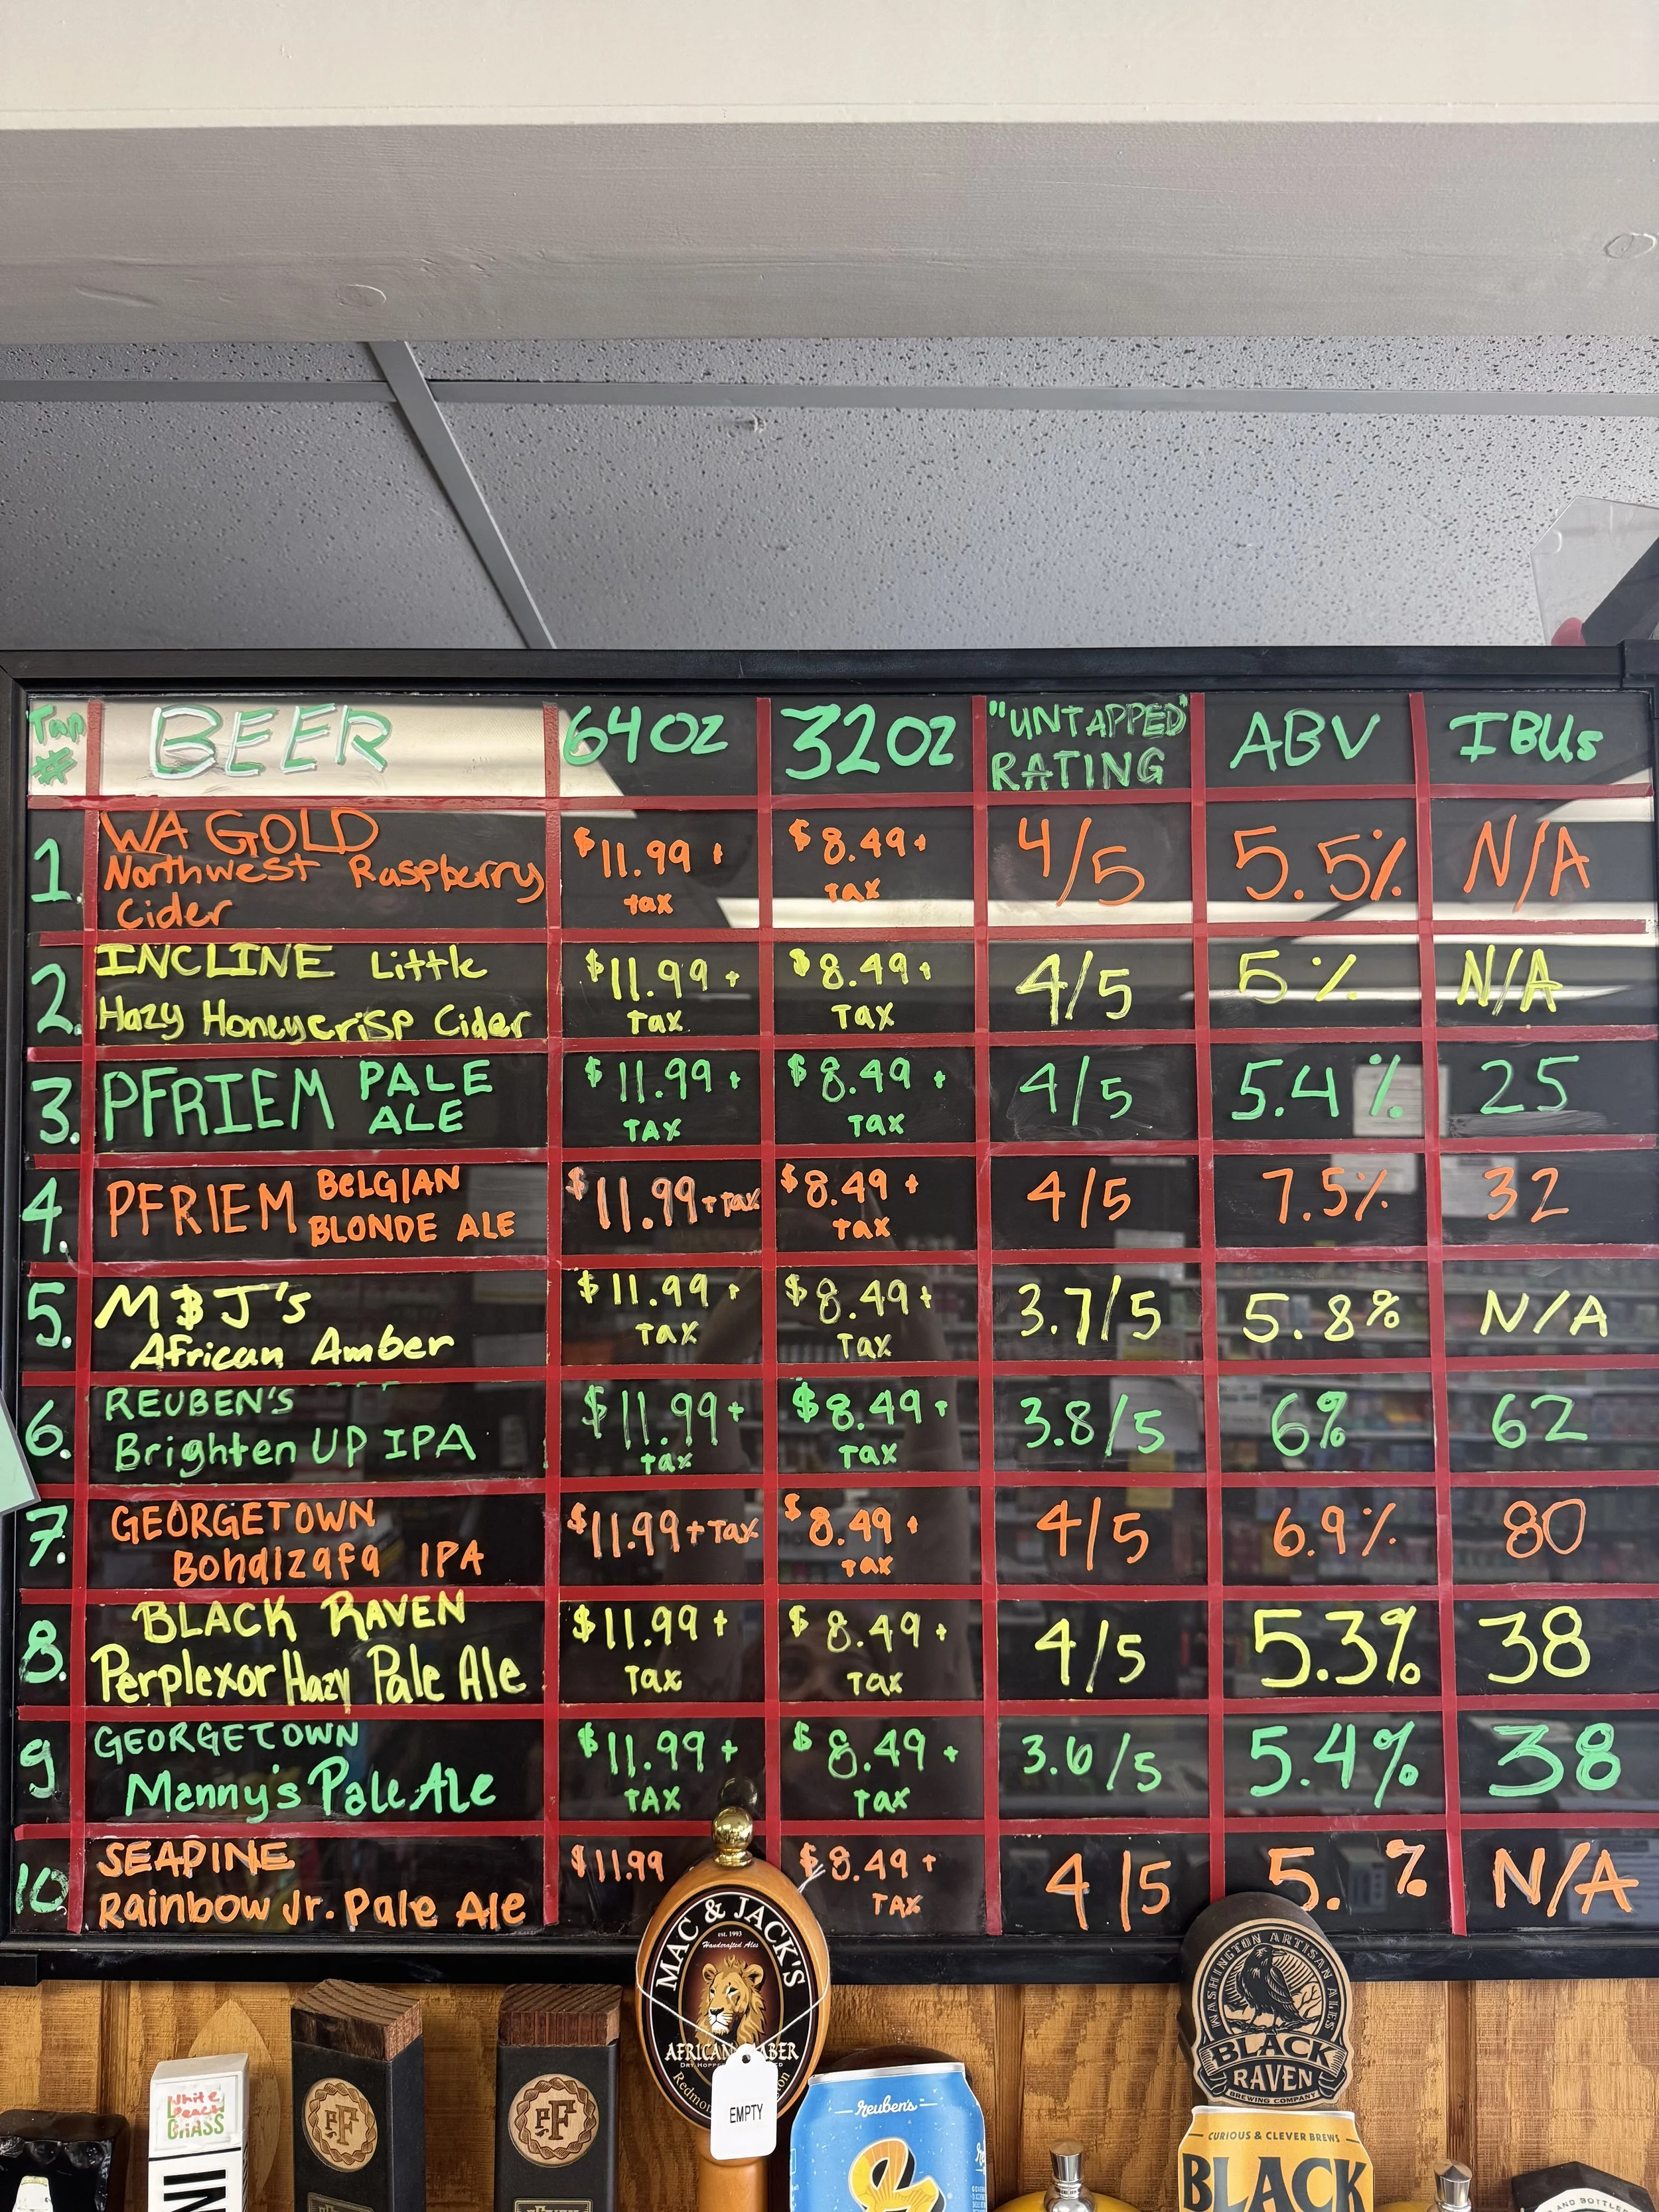 Tap # BEER 64oz 32oz "UNTAPPED" RATING ABV IBUs
1. WA GOLD Northwest Raspberry Cider $11.99 + tax $8.49 + tax 4/5 5.5% N/A
2. INCLINE Little Hazy Honeycrisp Cider $11.99 + Tax $8.49 + Tax 4/5 5% N/A
3. PFRIEM PALE ALE $11.99 + TAX $8.49 + Tax 4/5 5.4% 25
4. PFRIEM BELGIAN BLONDE ALE $11.99 + Tax $8.49 + Tax 4/5 7.5% 32
5. M&J's African Amber $11.99 + Tax $8.49 + Tax 3.7/5 5.8% N/A
6. REUBEN'S Brighten UP IPA $11.99 + Tax $8.49 + Tax 3.8/5 6% 62
7. GEORGETOWN Bohdizafa IPA $11.99 + Tax $8.49 + Tax 4/5 6.9% 80
8. BLACK RAVEN Perplexor Hazy Pale Ale $11.99 + Tax $8.49 + Tax 4/5 5.3% 38
9 GEORGETOWN Manny's Pale Ale $11.99 + TAX $8.49 + Tax 3.6/5 5.4% 38
10 SEAPINE Rainbow Jr. Pale Ale $11.99 $8.49 + TAX 4/5 5. % N/A
MAC & JACK'S
est. 1993
Handcrafted Ales
AFRICAN
EMPTY
White
Peach
GRASS
IN
PF
PF
Reuben's
WASHINGTON ARTISAN ALES
BLACK
RAVEN
BREWING COMPANY
CURIOUS & CLEVER BREWS
BLACK